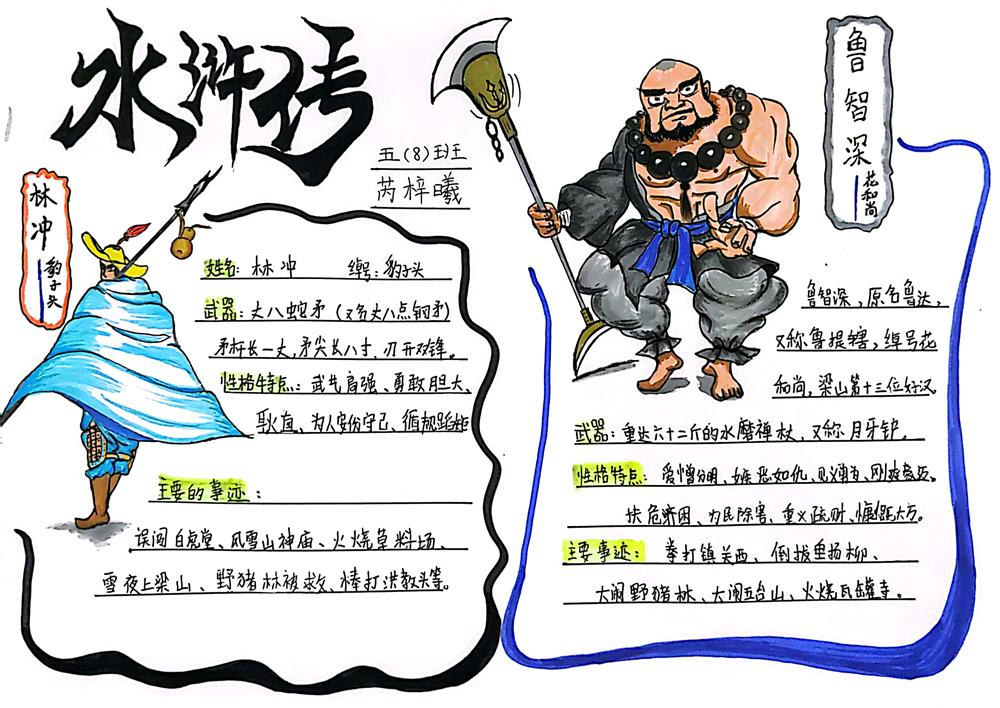 水浒传
五（8）班
芮梓曦
林冲
豹子头
姓名：林冲 绰号：豹子头
武器：丈八蛇矛（又名丈八点钢矛）
矛杆长一丈，矛尖长八寸，刃开双锋。
性格特点：武艺高强、勇敢胆大、
耿直、为人安份守己、循规蹈矩
主要的事迹：
误闯白虎堂、风雪山神庙、火烧草料场、
雪夜上梁山、野猪林被救、棒打洪教头等。
鲁智深
花和尚
鲁智深，原名鲁达，
又称鲁提辖，绰号花
和尚，梁山第十三位好汉
武器：重达六十二斤的水磨禅杖，又称月牙铲。
性格特点：爱憎分明、嫉恶如仇、见义勇为、刚爽豪迈。
扶危济困、为民除害、重义疏财、慷慨大方。
主要事迹：拳打镇关西、倒拔垂杨柳、
大闹野猪林、大闹五台山、火烧瓦罐寺。